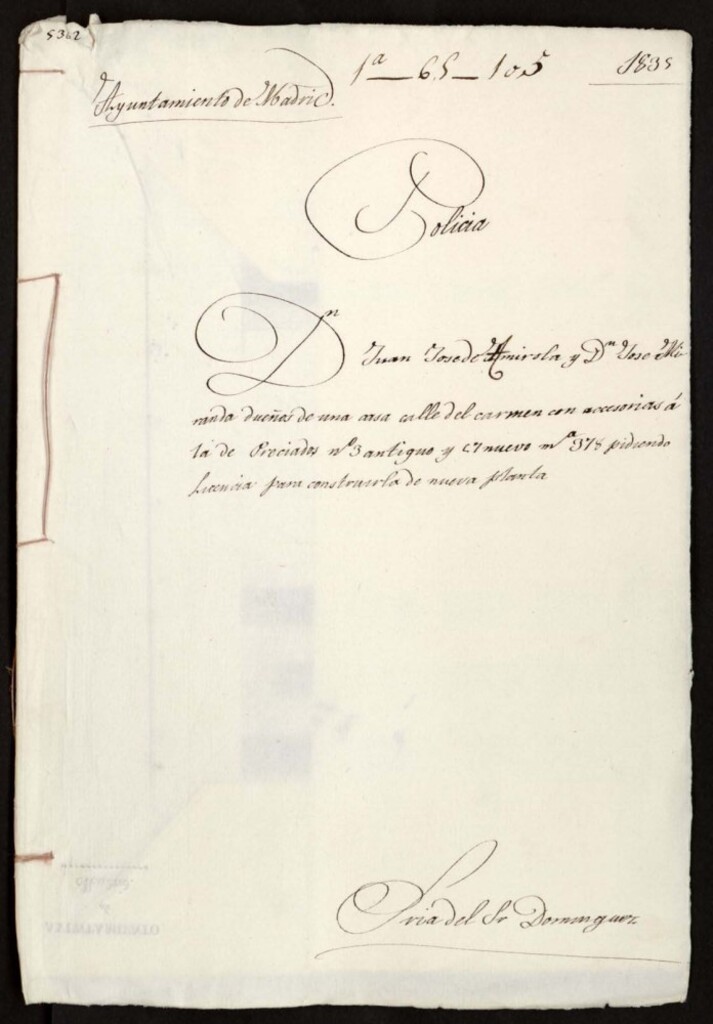 5362
1ª — 65 — 105
1835
Ayuntamiento de Madrid.
Policia
Dn Juan Jose de Amirola y Dn Jose Mi-
randa dueños de una casa calle del carmen con accesorias á
la de Preciados nº 3 antiguo y 67 nuevo mª 378 pidiendo
Licencia para construirla de nueva planta
Sria del Sr Dominguez
AYUNTAMIENTO